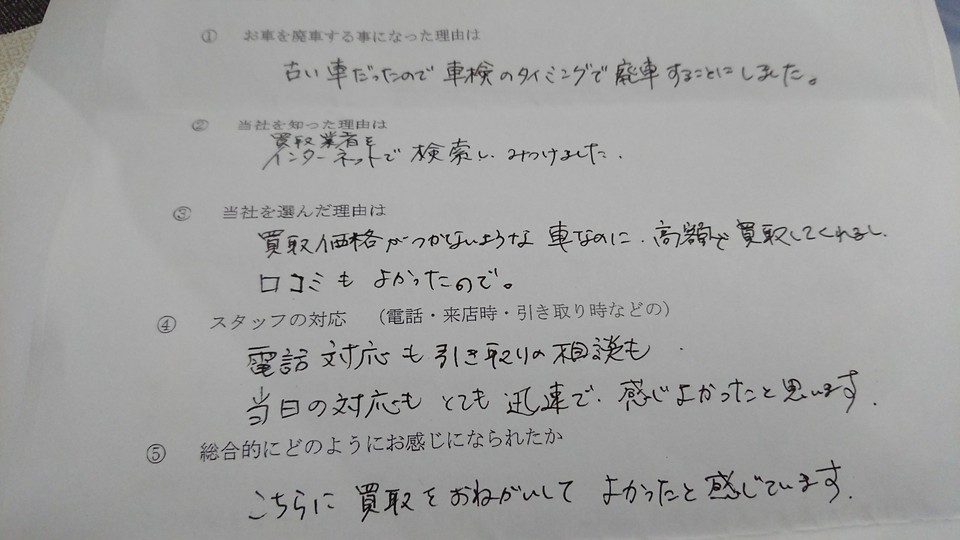 ① お車を廃車する事になった理由は
古い車だったので車検のタイミングで廃車することにしました。
② 当社を知った理由は
買取業者を
インターネットで検索し、みつけました。
③ 当社を選んだ理由は
買取価格がつかないような車なのに、高額で買取してくれるし、
口コミもよかったので。
④ スタッフの対応 （電話・来店時・引き取り時などの）
電話対応も引き取りの相談も
当日の対応もとても迅速で、感じよかったと思います。
⑤ 総合的にどのようにお感じになられたか
こちらに買取をおねがいしてよかったと感じています。